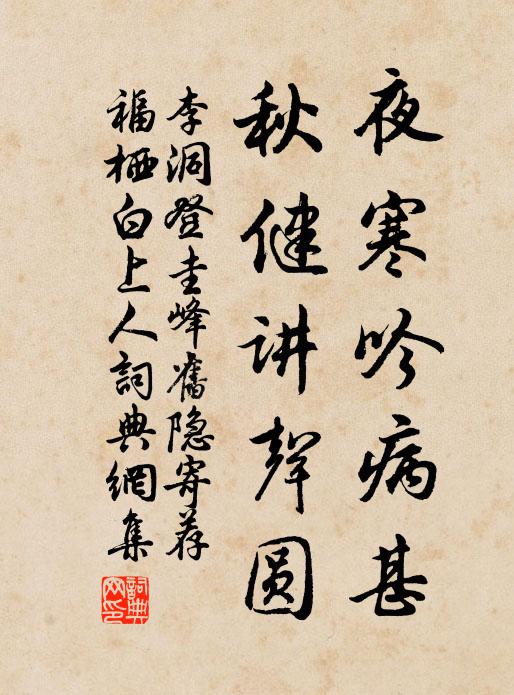 夜寒吟病甚
秋健讲聲圆
李洞登圭峰舊隐寄荐
福栖白上人詞典網集
詞典
网印